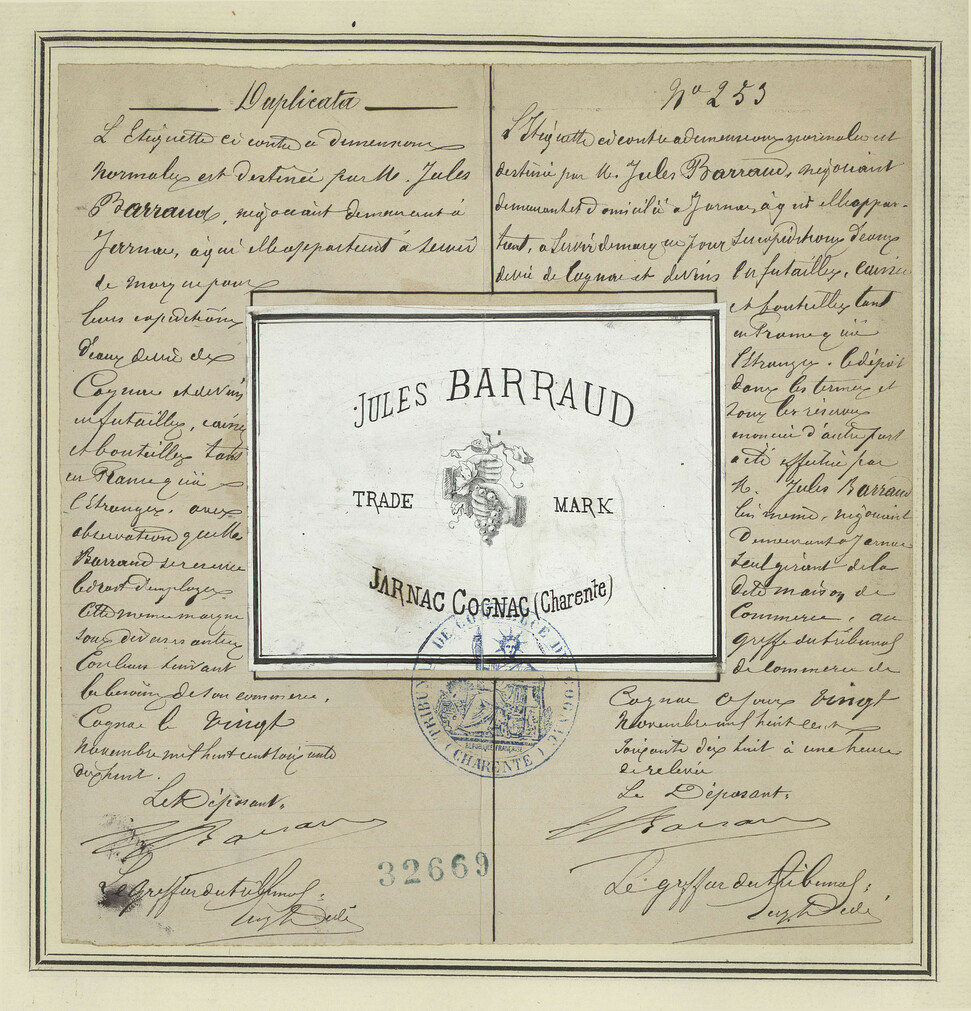 Duplicata
L'Etiquette ci contre a dimensions
normales est destinée par M. Jules
Barraud, négociant demeurant à
Jarnac, à qui elle appartient à servir
de marque pour
leurs expéditions
d'eaux de vie de
Cognac et de vins
en futailles, caisses
et bouteilles tant
en France qu'à
l'étranger, avec
observation que M.
Barraud se réserve
le droit d'employer
Cette même marque
sous diverses autres
Couleurs suivant
les besoins de son commerce.
Cognac le vingt
novembre mil huit cent soixante
dix huit.
Le Déposant.
J. Barraud
Le greffier du tribunal
No 253
L'Etiquette ci contre a dimensions normales est
destinée par M. Jules Barraud, négociant
demeurant et domicilié à Jarnac, à qui elle appar-
tient, à servir de marque pour ses expéditions d'eaux
de vie de Cognac et de vins en futailles, caisses
et bouteilles tant
en France qu'à
l'étranger. Le dépôt
dans les termes et
sous les réserves
énoncées d'autre part
a été effectué par
M. Jules Barraud
lui même, négociant
demeurant à Jarnac
seul gérant de la
dite maison de
Commerce, au
greffe du tribunal
de commerce de
Cognac ce jour vingt
novembre mil huit cent
soixante dix huit à une heure
de relevée
Le Déposant.
J. Barraud
Le greffier du tribunal
JULES BARRAUD
TRADE MARK
JARNAC COGNAC (Charente)
TRIBUNAL DE COMMERCE DE COGNAC
REPUBLIQUE FRANÇAISE
(CHARENTE)
32669